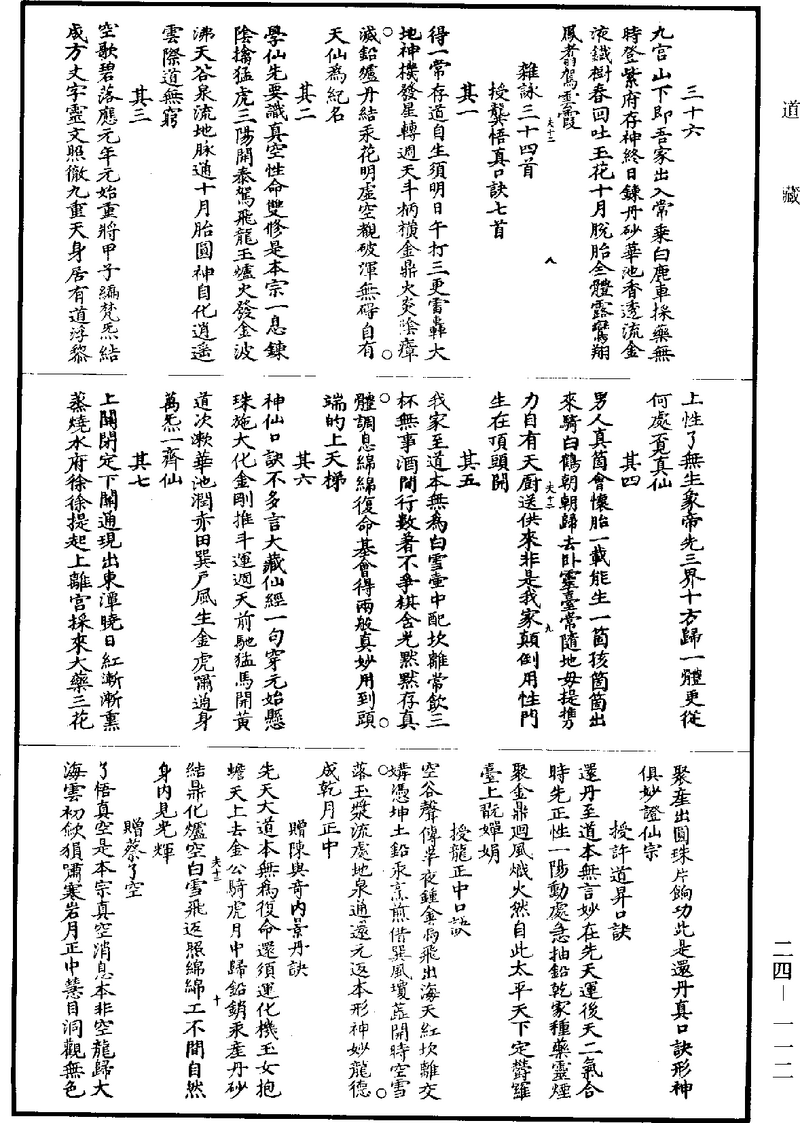 道藏
三十六
九宮山下即吾家出入常乘白鹿車採藥無
時登紫府存神終日鍊丹砂華池香透流金
液鐵樹春回吐玉花十月脫胎全體露鸞翔
鳳翥駕雲霞
夫十二
八
雜詠三十四首
授龔悟真口訣七首
其一
得一常存道自生須明日午打三更雷轟大
地神機發星轉週天斗柄橫金鼎火炎陰瘴
滅鉛爐丹結汞花明虛空觀破渾無碍自有
天仙為紀名
其二
學仙先要識真空性命雙修是本宗一息鍊
陰擒猛虎三陽開泰駕飛龍玉爐火發金波
沸天谷泉流地脉通十月胎圓神自化逍遥
雲際道無窮
其三
空歌碧落應元年元始重將甲子編梵炁結
成方丈字靈文照徹九重天身居有道浮黎
上性了無生象帝先三界十方歸一體更從
何處覓真仙
其四
男人真箇會懷胎一載能生一箇孩箇箇出
來騎白鶴朝朝歸去卧靈臺常隨地母提攜
力自有天廚送供來非是我家顛倒用性門
生在頂頭開
夫十二
九
其五
我家至道本無為白雪壺中配坎離常飲三
杯無事酒閒行數著不爭棋含光默默存真
體調息綿綿復命基會得兩般真妙用到頭
端的上天梯
其六
神仙口訣不多言大藏仙經一句穿元始懸
珠施大化金剛推斗運週天前馳猛馬開黃
道次漱華池潤赤田巽戶風生金虎嘯過身
萬炁一齊仙
其七
上關閉定下關通現出東潭曉日紅漸漸熏
蒸燒水府徐徐提起上離宮採來大藥三花
聚產出圓珠片餉功此是還丹真口訣形神
俱妙證仙宗
授許道昇口訣
還丹至道本無言妙在先天運後天二氣合
時先正性一陽動處急抽鉛乾家種藥靈煙
聚金鼎迴風熾火然自此太平天下定欝羅
臺上翫嬋娟
授龍正中口訣
空谷聲傳半夜鍾金烏飛出海天紅坎離交
媾憑坤土鉛汞烹煎借巽風瓊蘂開時空雪
落玉漿流處地泉通還元返本形神妙龍德
成乾月正中
贈陳與奇內景丹訣
先天大道本無為復命還須運化機玉女抱
蟾天上去金公騎虎月中歸鉛銷汞產丹砂
結鼎化爐空白雪飛返照綿綿工不間自然
身內見光輝
夫十二
十
贈蔡了空
了悟真空是本宗真空消息本非空龍歸大
海雲初斂猿嘯寒岩月正中慧目洞觀無色
二四－一一二